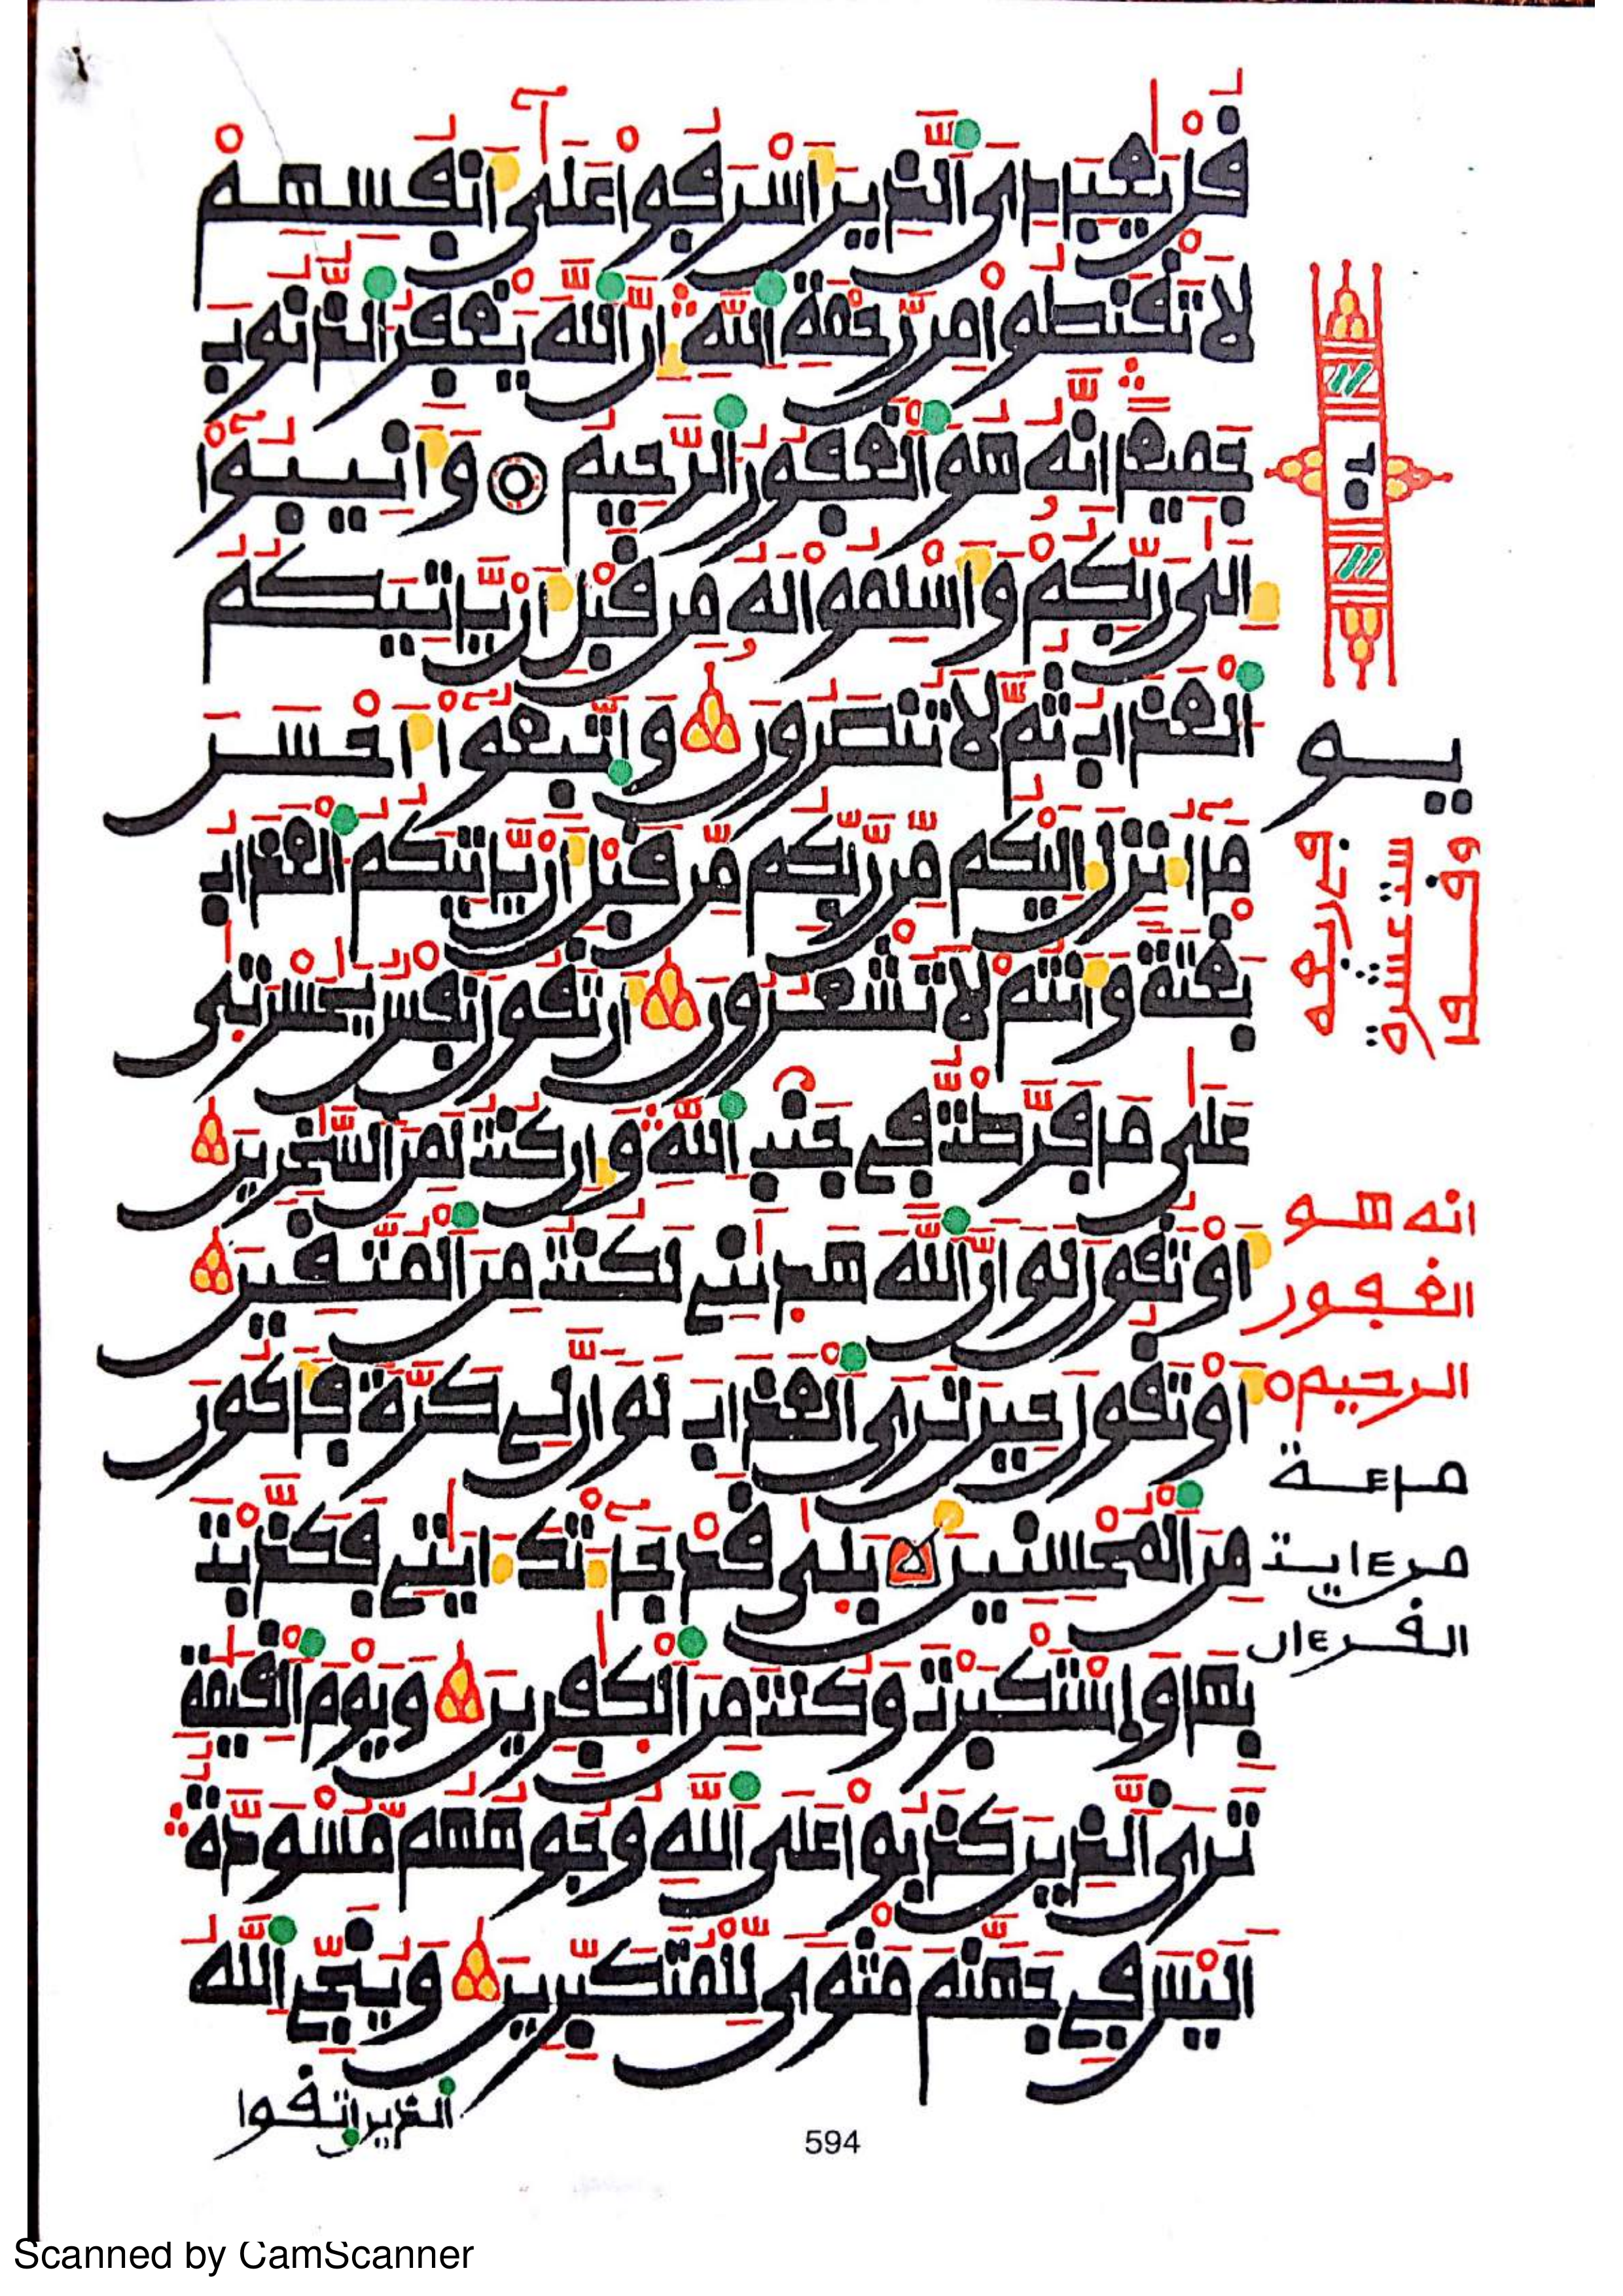 قُلْ يَٰعِبَادِىَ ٱلَّذِينَ أَسْرَفُوا۟ عَلَىٰٓ أَنفُسِهِمْ
لَا تَقْنَطُوا۟ مِن رَّحْمَةِ ٱللَّهِ إِنَّ ٱللَّهَ يَغْفِرُ ٱلذُّنُوبَ
جَمِيعًا إِنَّهُۥ هُوَ ٱلْغَفُورُ ٱلرَّحِيمُ وَأَنِيبُوٓا۟
إِلَىٰ رَبِّكُمْ وَأَسْلِمُوا۟ لَهُۥ مِن قَبْلِ أَن يَّاتِيَكُمُ
ٱلْعَذَابُ ثُمَّ لَا تُنصَرُونَ وَٱتَّبِعُوٓا۟ أَحْسَنَ
مَآ أُنزِلَ إِلَيْكُم مِّن رَّبِّكُم مِّن قَبْلِ أَن يَّاتِيَكُمُ ٱلْعَذَابُ
بَغْتَةً وَأَنتُمْ لَا تَشْعُرُونَ أَن تَقُولَ نَفْسٌ يَٰحَسْرَتَىٰ
عَلَىٰ مَا فَرَّطتُ فِى جَنۢبِ ٱللَّهِ وَإِن كُنتُ لَمِنَ ٱلسَّٰخِرِينَ
أَوْ تَقُولَ لَوْ أَنَّ ٱللَّهَ هَدَىٰنِى لَكُنتُ مِنَ ٱلْمُتَّقِينَ
أَوْ تَقُولَ حِينَ تَرَى ٱلْعَذَابَ لَوْ أَنَّ لِى كَرَّةً فَأَكُونَ
مِنَ ٱلْمُحْسِنِينَ بَلَىٰ قَدْ جَآءَتْكَ ءَايَٰتِى فَكَذَّبْتَ
بِهَا وَٱسْتَكْبَرْتَ وَكُنتَ مِنَ ٱلْكَٰفِرِينَ وَيَوْمَ ٱلْقِيَٰمَةِ
تَرَى ٱلَّذِينَ كَذَبُوا۟ عَلَى ٱللَّهِ وُجُوهُهُم مُّسْوَدَّةٌ
أَلَيْسَ فِى جَهَنَّمَ مَثْوًى لِّلْمُتَكَبِّرِينَ وَيُنَجِّى ٱللَّهُ
ٱلذين ٱتقوا
594
يو
انه هو
الغفور
الرحيم
ماءة
من ءاية
القرءان
Scanned by CamScanner